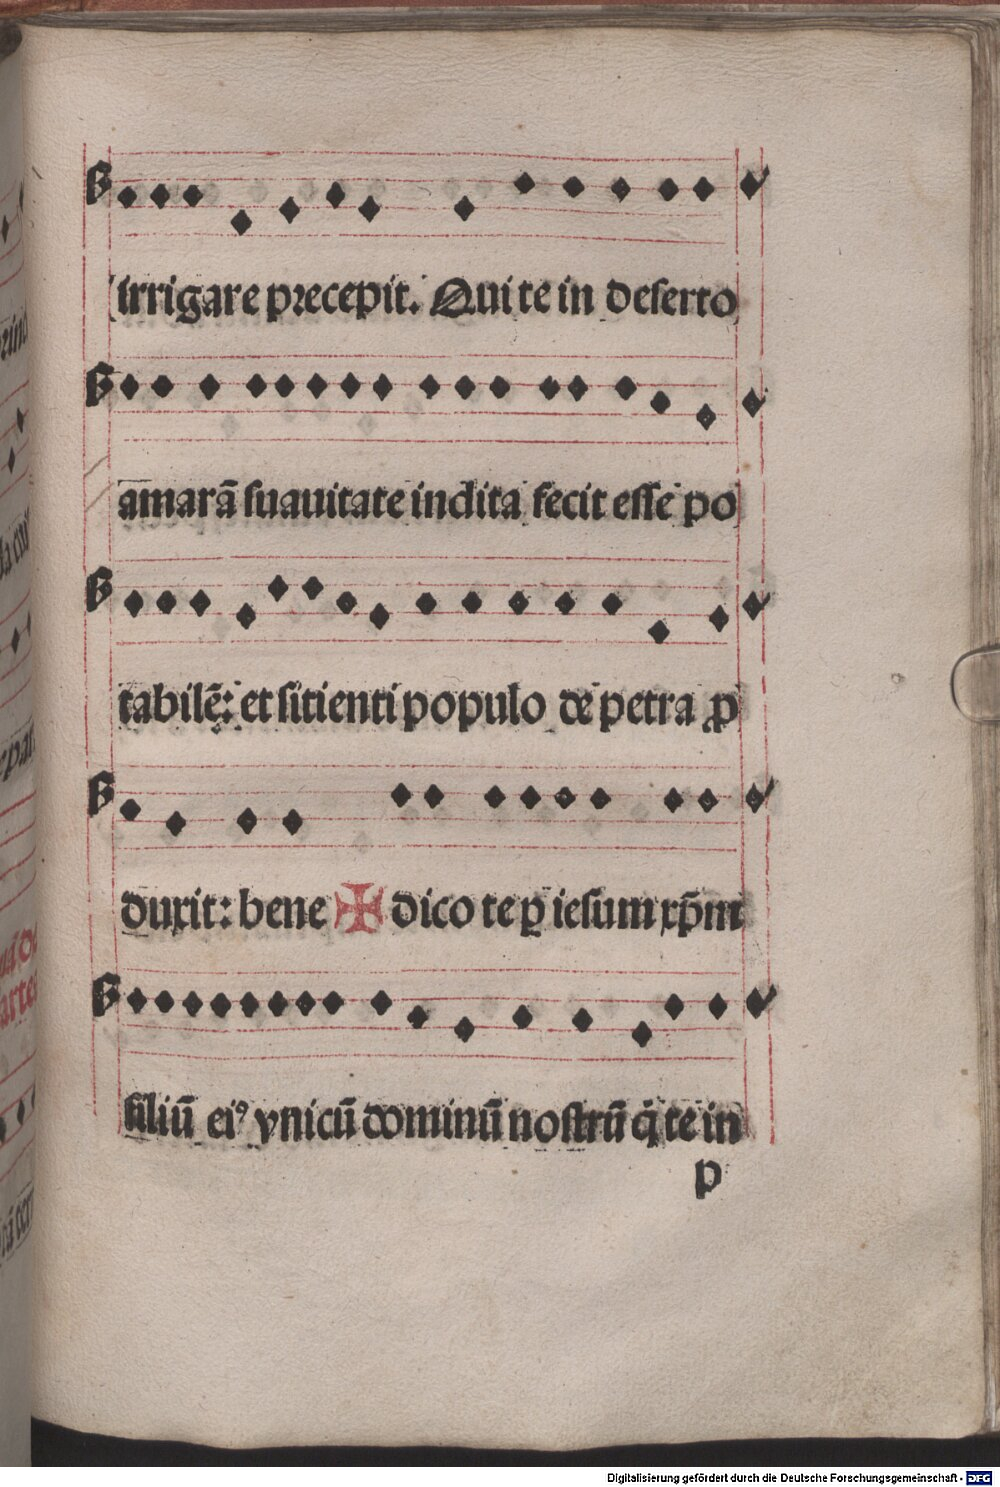 irrigare precepit. Qui te in deserto
amarā suauitate indita fecit esse po
tabilē: et sitienti populo de petra ꝓ
duxit: bene ✠ dico te ꝑ iesum xp̄m
filiū eiꝰ vnicū dominū nostrū q̄ te in
p
Digitalisierung gefördert durch die Deutsche Forschungsgemeinschaft - DFG